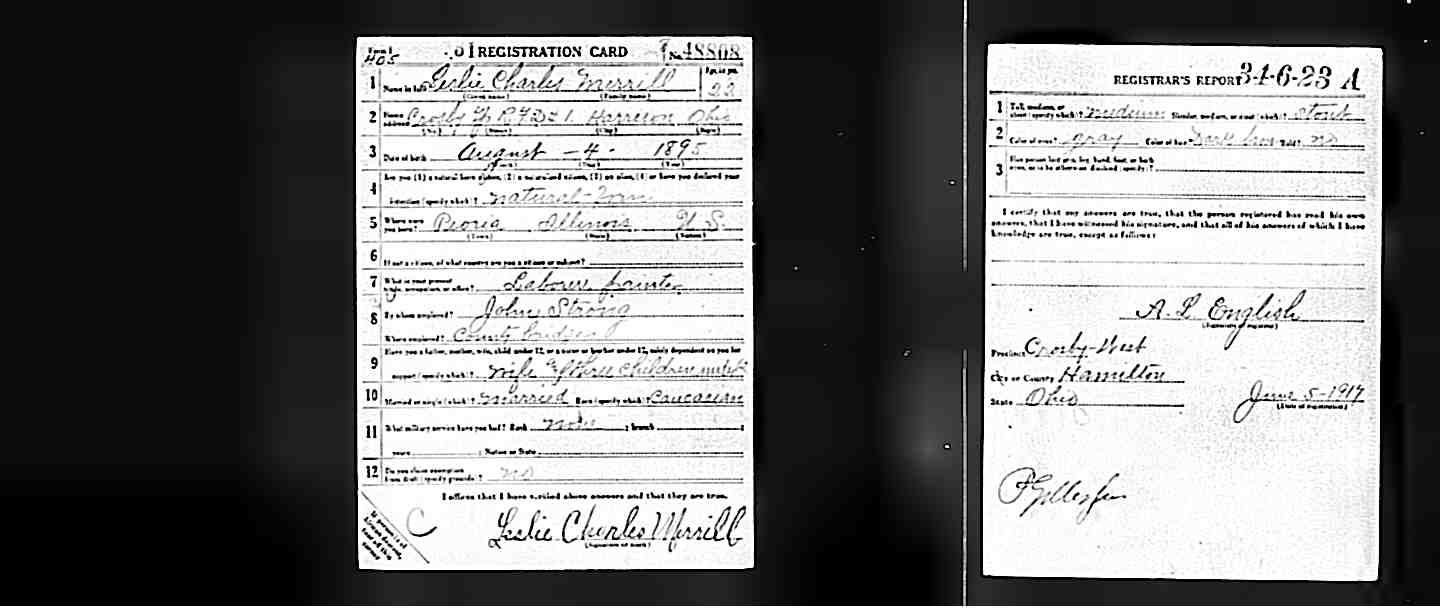 Form 1
405
REGISTRATION CARD No. 48808
1 Name in full Leslie Charles Merrill Age, in yrs. 22
(Given name) (Family name)
2 Home address Crosby R.F.D # 1 Harrison Ohio
(No.) (Street) (City) (State)
3 Date of birth August - 4 - 1895
(Month) (Day) (Year)
4 Are you (1) a natural born citizen, (2) a naturalized citizen, (3) an alien, (4) or have you declared your
intention (specify which)? natural-born
5 Where were you born? Peoria Illinois U.S.
(Town) (State) (Nation)
6 If not a citizen, of what country are you a citizen or subject?
7 What is your present trade, occupation, or office? Laborer painter
8 By whom employed? John Strong
Where employed? County bridges
9 Have you a father, mother, wife, child under 12, or a sister or brother under 12, solely dependent on you for
support (specify which)? Wife & three children
10 Married or single (which)? Married Race (specify which)? Caucasian
11 What military service have you had? Rank none ; branch ;
years ; Nation or State
12 Do you claim exemption from draft (specify grounds)? no
I affirm that I have verified above answers and that they are true.
C
Leslie Charles Merrill
(Signature or mark)
REGISTRAR'S REPORT 34-6-23 A
1 Tall, medium, or short (specify which)? medium Slender, medium, or stout (which)? stout
2 Color of eyes? gray Color of hair? Dark brown Bald? no
3 Has person lost arm, leg, hand, foot, or both
eyes, or is he otherwise disabled (specify)?
I certify that my answers are true, that the person registered has read his own
answers, that I have witnessed his signature, and that all of his answers of which I have
knowledge are true, except as follows:
A. L. English
(Signature of registrar)
Precinct Crosby-West
City or County Hamilton
State Ohio June 5-1917
(Date of registration)